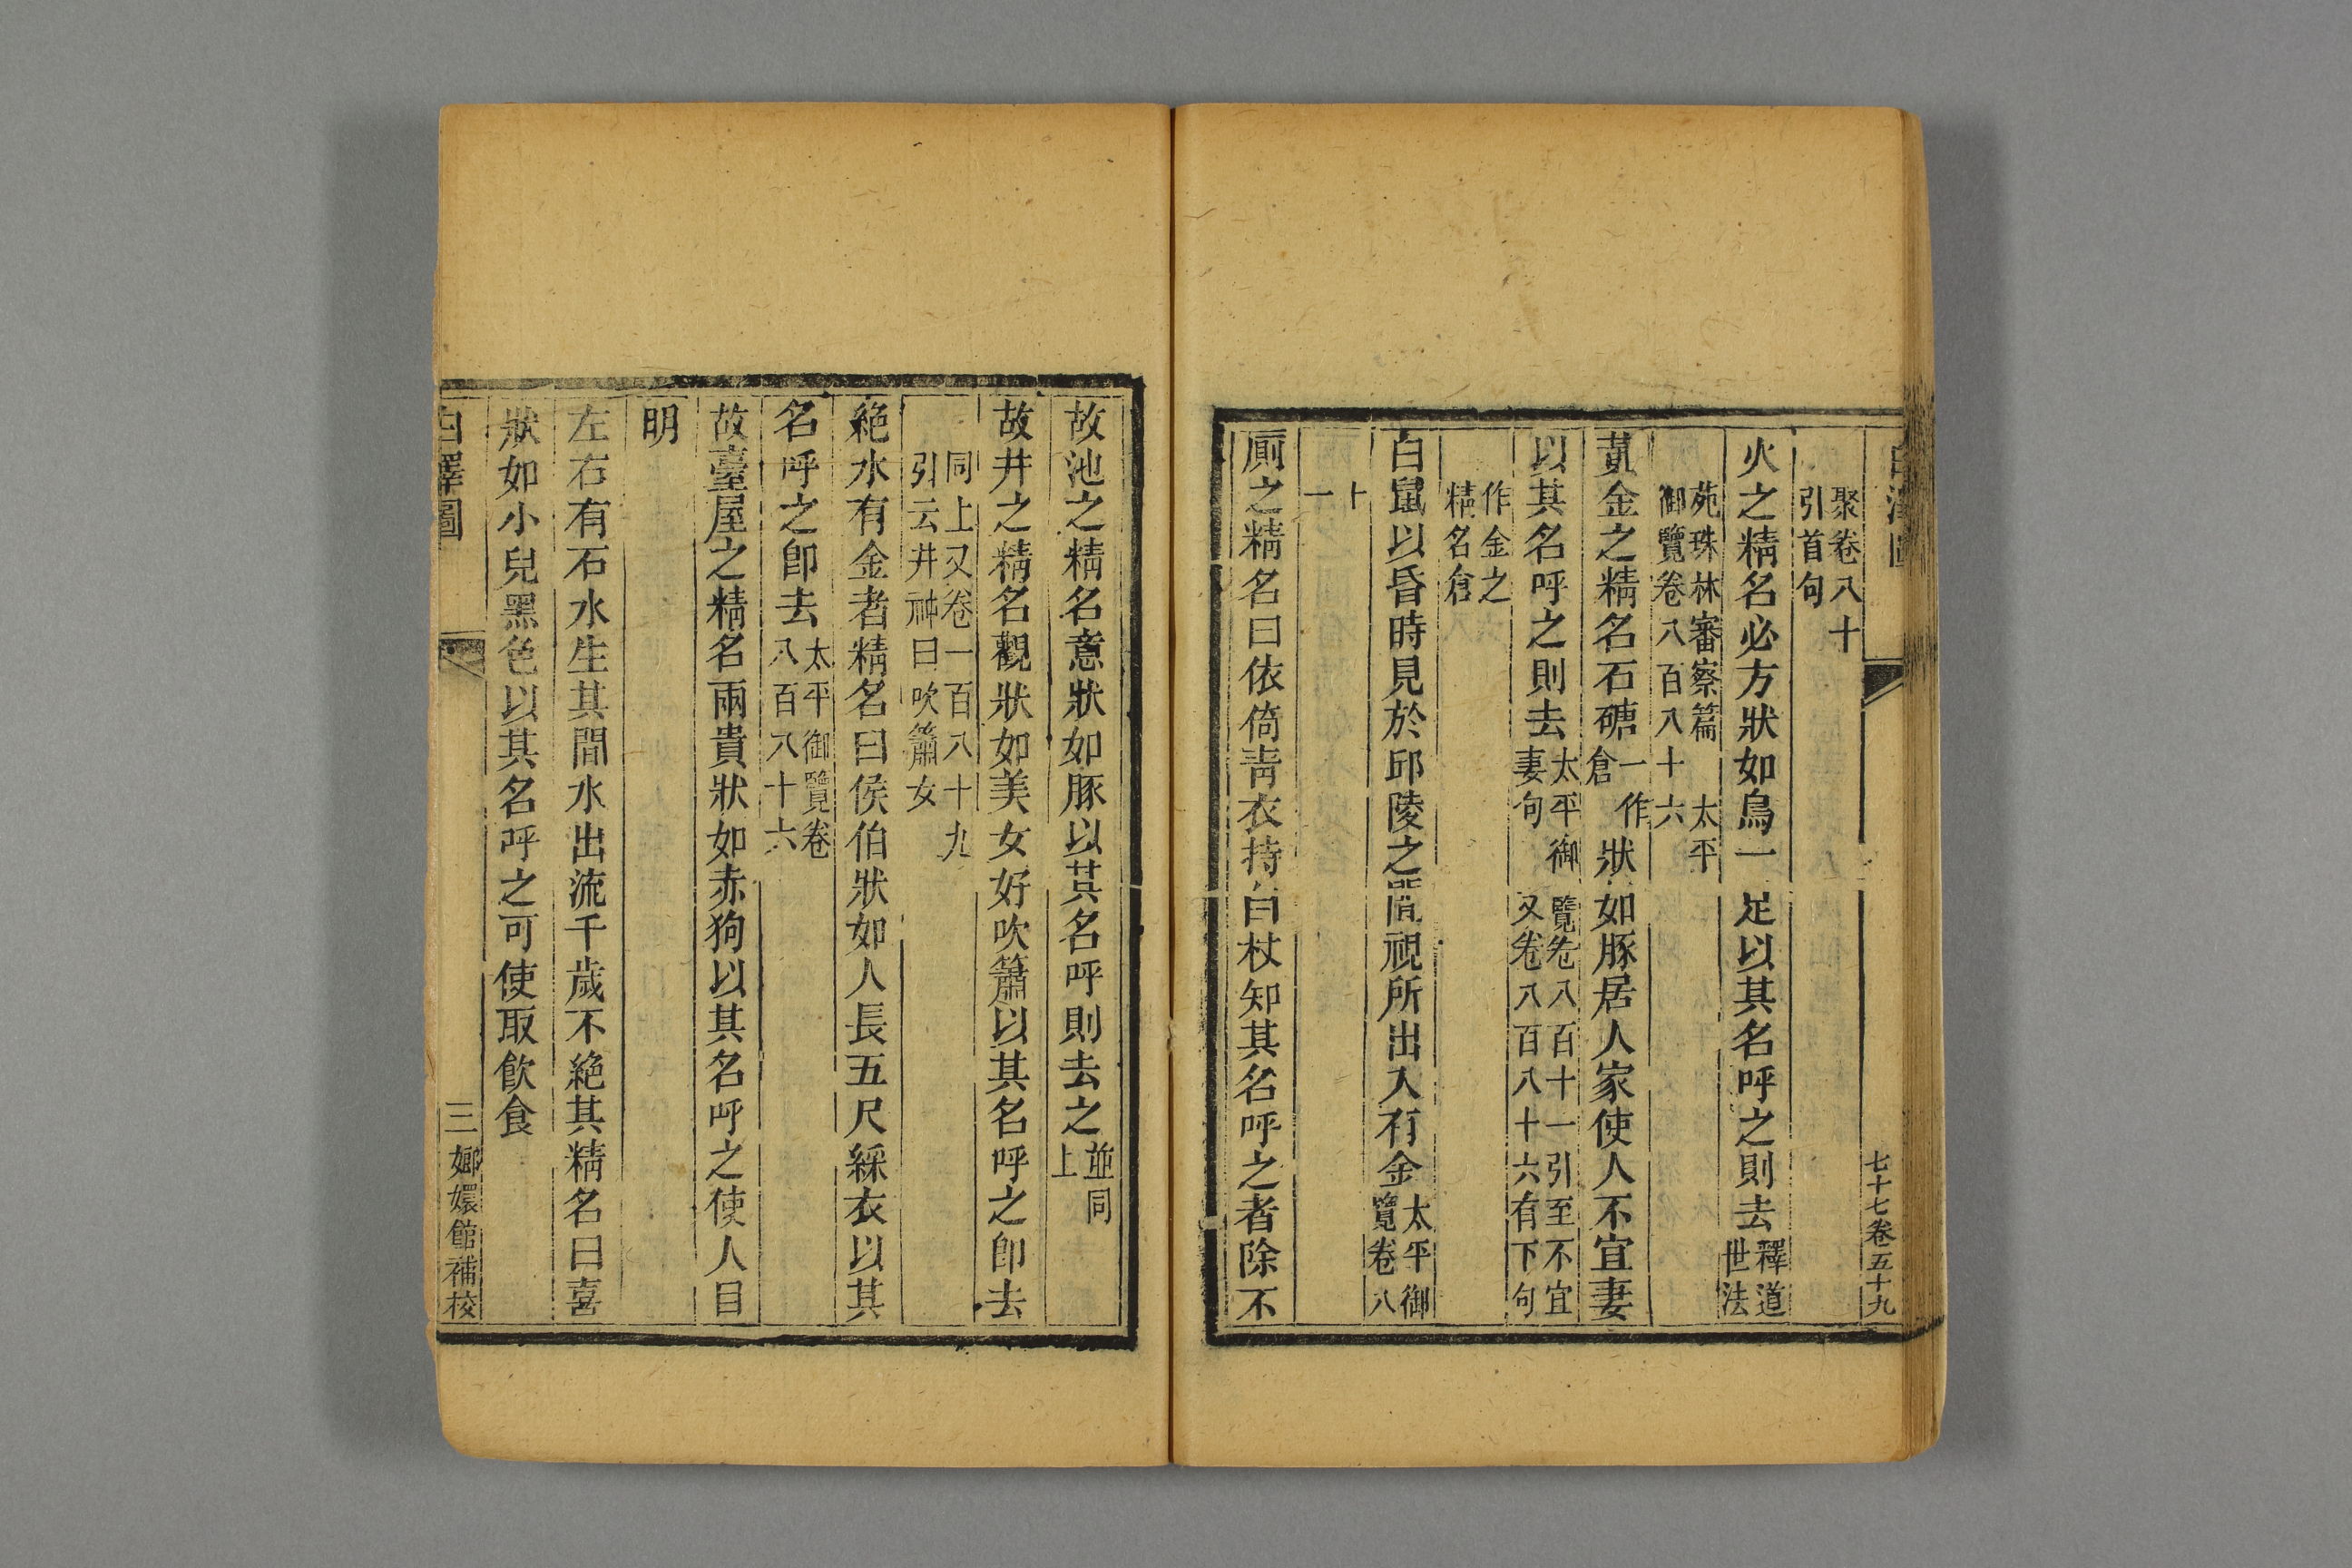 七十七卷五十九
聚卷八十
引首句
火之精名必方狀如鳥一足以其名呼之則去釋道世法
苑珠林審察篇 太平
御覽卷八百八十六
黃金之精名石䃯一作倉狀如豚居人家使人不宜妻
以其名呼之則去太平御覽卷八百十一引至不宜妻句又卷八百八十六有下句
作金之
精名倉
白鼠以昏時見於邱陵之間視所出入有金太平御覽卷八
十
一
廁之精名曰依倚靑衣持白杖知其名呼之者除不
故池之精名意狀如豚以其名呼則去之並同上
故井之精名觀狀如美女好吹簫以其名呼之卽去
同上又卷一百八十九
引云井神曰吹簫女
絕水有金者精名曰侯伯狀如人長五尺綵衣以其
名呼之卽去太平御覽卷八百八十六
故臺屋之精名兩貴狀如赤狗以其名呼之使人目
明
左右有石水生其間水出流千歲不絕其精名曰喜
狀如小兒黑色以其名呼之可使取飮食
白澤圖 三 嫏嬛館補校